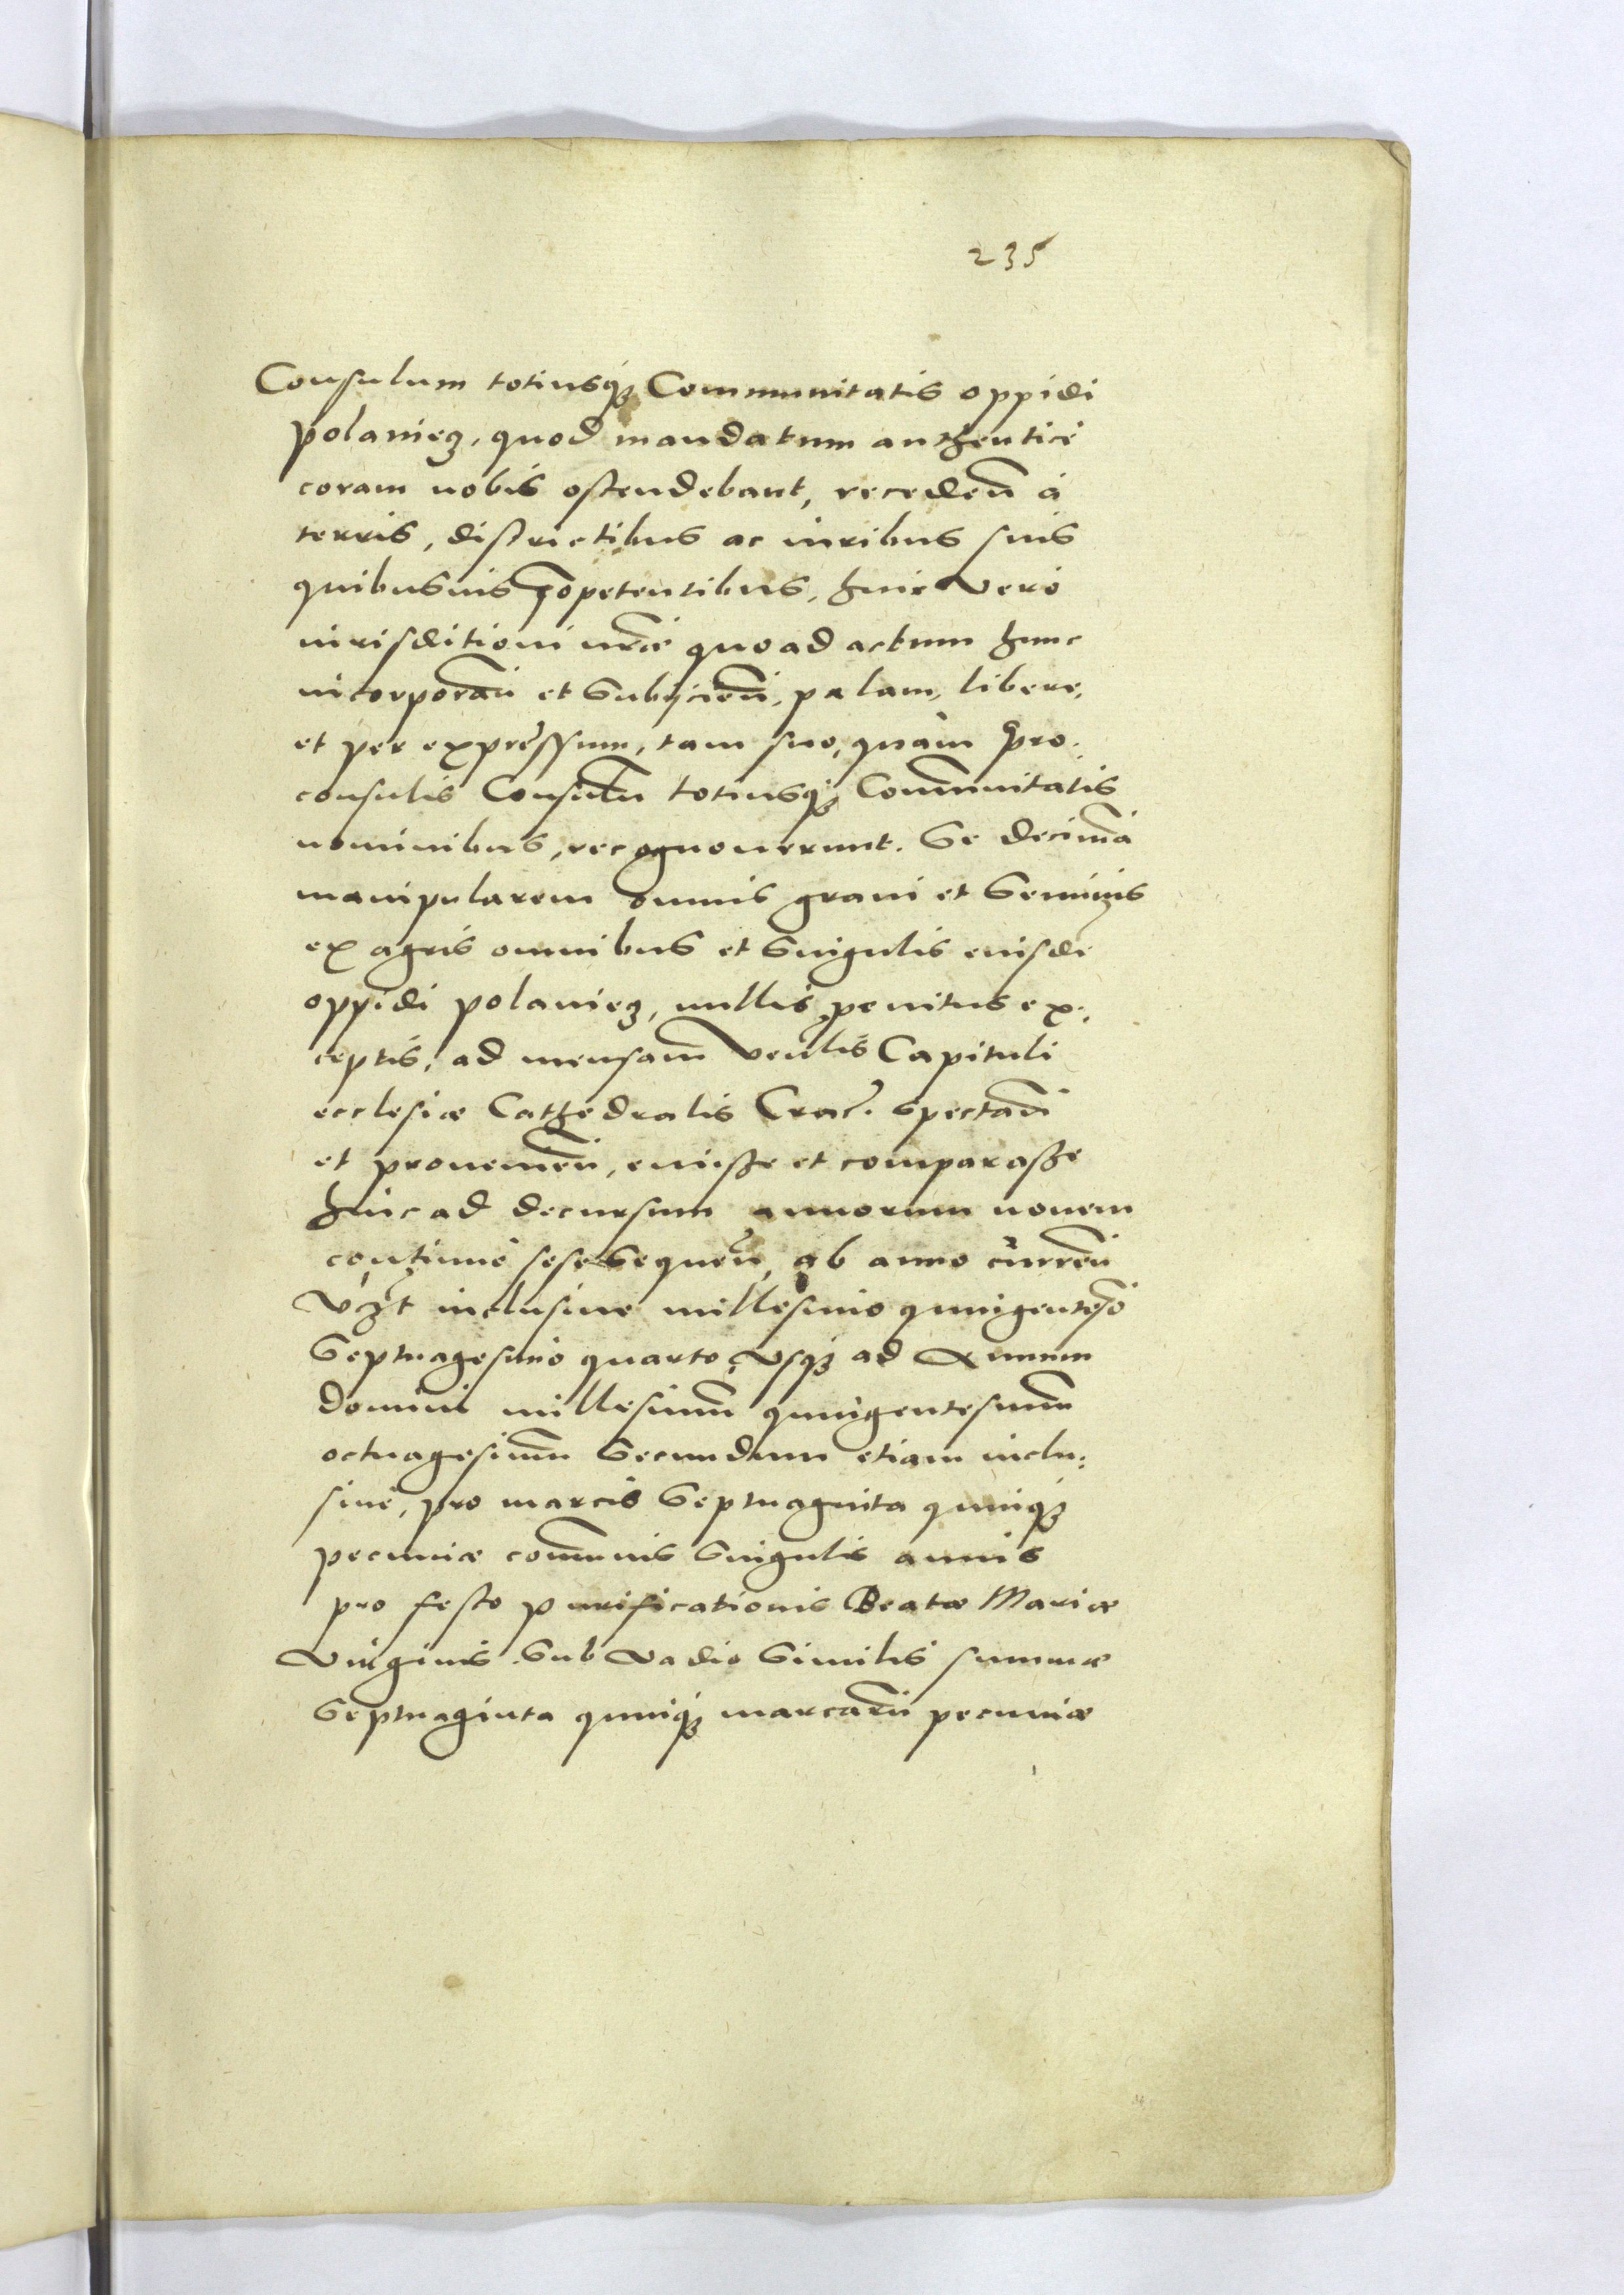 235
Consulum totiusq₃ Communitatis oppidi
Polaniecz, quod mandatum authentice
coram nobis ostendebant, recedeñ à
terris, districtibus ac iuribus suis
quibusuis cōpetentibus, huic vero
iurisditioni nr̃æ quo ad actum hunc
incorporañ et Subijcieñ, palam, libere,
et per expressum, tam suo, quàm Pro:
consulis Consulũ totiusq₃ Com̃unitatis
nominibus, recognouerunt. Se decimã
manipularem omnis grani et Seminis
ex agris omnibus et Singulis eiusdẽ
oppidi Polaniecz, nullis penitus ex:
ceptis, ad mensam Veñlis Capituli
ecclesiæ Cathedralis Crac̃. Spectañ
et prouenieñ, emisse et comparasse
hinc ad decursum annorum nouem
continuè sese Sequeñ, ab anno curreñ
vz̃t inclusiue millesimo quingentesõ
Septuagesimo quarto, vsq₃ ad Annum
Domini millesimũ quingentesimũ
octuagesimũ Secundum etiam inclu:
siuè, pro marcis Septuaginta quinq₃
pecuniæ com̃unis Singulis annis
pro festo Purificationis Beatæ Mariæ
Virginis. Sub vadio Similis summæ
Septuaginta quinq₃ marcarũ pecuniæ